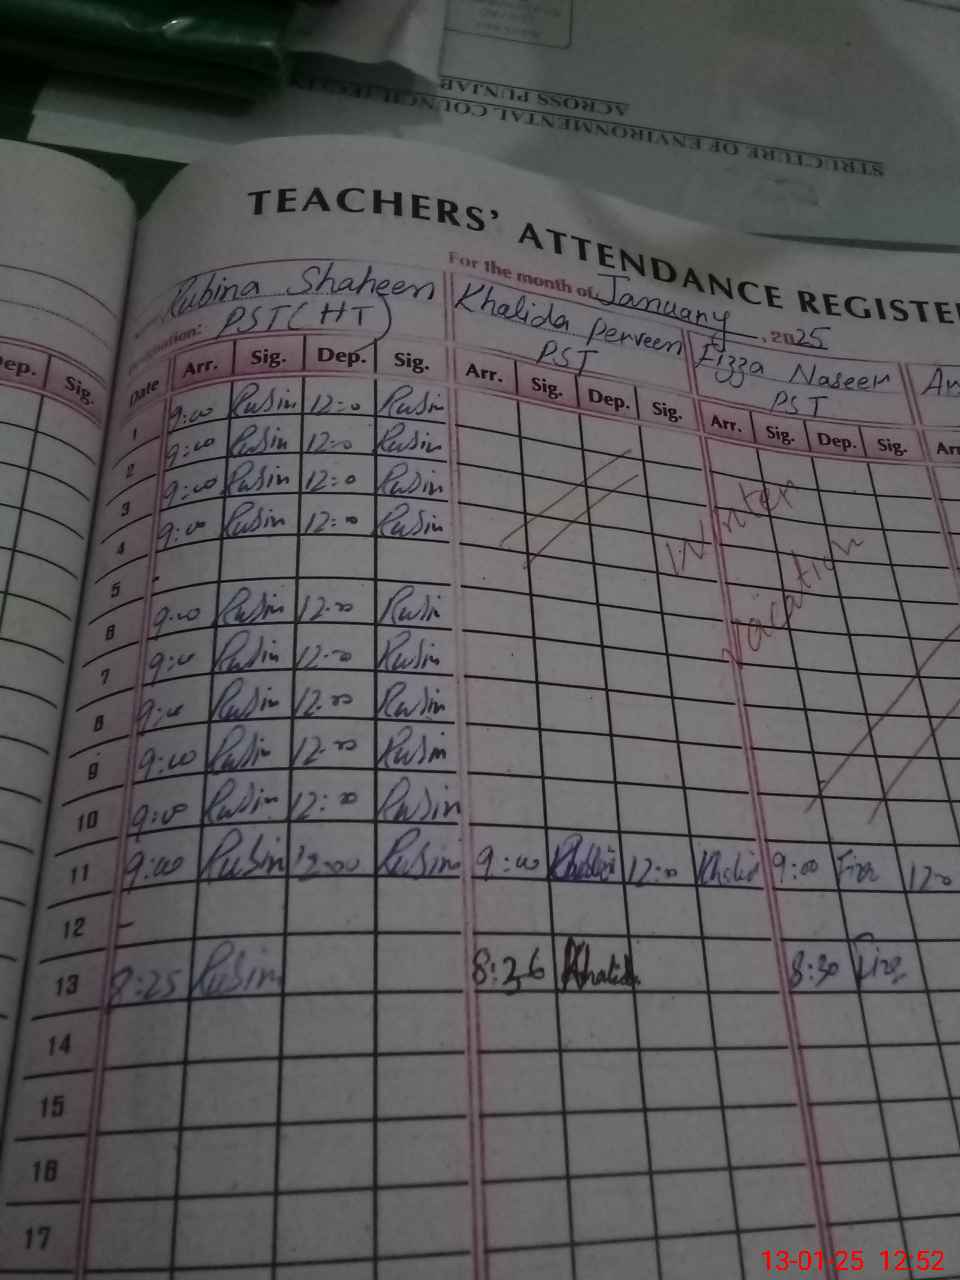 STRUCTURE OF ENVIRONMENTAL COUNCIL
ACROSS PUNJAB
TEACHERS' ATTENDANCE REGISTE
For the month of January, 2025
Rubina Shaheen
PST (HT)
Khalida perveen
PST
Fizza Naseer
PST
ep. Sig.
Date Arr. Sig. Dep. Sig. Arr. Sig. Dep. Sig. Arr. Sig. Dep. Sig. Arr
1 9:00 Rubin 12:0 Rubin
2 9:00 Rubin 12:0 Rubin
3 9:00 Rubin 12:0 Rubin
4 9:00 Rubin 12:0 Rubin
5 -
6 9:00 Rubin 12:00 Rubin
7 9:0 Rubin 12:00 Rubin
8 9:0 Rubin 12:00 Rubin
9 9:00 Rubin 12:00 Rubin
10 9:00 Rubin 12:00 Rubin
winter
vacation
11 9:00 Rubin 12:00 Rubin 9:00 Khalid 12:0 Khalid 9:00 Fizza 12:0
12 -
13 8:25 Rubin 8:26 Khalida 8:30 Fizza
14
15
16
17
13-01-25 12:52